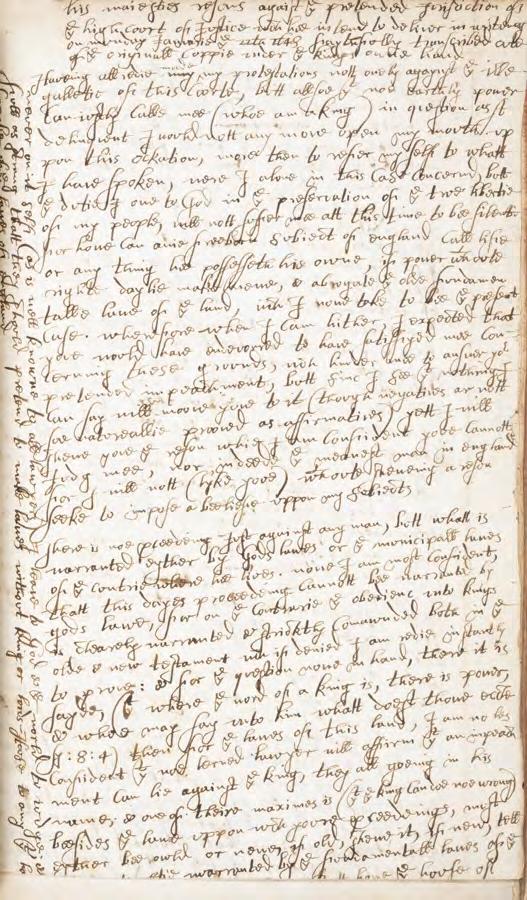 his majesties resons against ye pretended jurisdiction of
ye high court of Justice wch hee intend to deliver in writeing
on munday January ye 22th faythfully transcribed
of ye originall Coppie under ye kings owne hand
Having allredie my protestations nott onely against ye ille
gallitie of this Courte, butt allsoe yt noe earthly power
can iustly Calle mee (whoe am a king) in question as a
delinquent I would nott any more open my mouth up
pon this ocation, more then to refer my self to whatt
I have spoken, were I alone in this Case concern'd, butt
ye dutie I owe to God in ye preservation of ye trwe libertie
of my people, will nott sufer mee att this time to bee silente
for howe Can anie freeborn subiect of england Call lifie
or any thing hee possesseth his owne, if power wthoute
righte daylie make newe, & abrogate ye olde fundamen
talle lawe of ye land, wch I nowe take to bee ye present
Case. wherefore when I Cam hither, I expected that
yove would have endevored to have satisfied mee Con
cerning these grounds, wch hinder mee to answer yor
pretended impeachment, butt sinc I see yt nothing I
can say will moove yove to it (though negatives ar nott
soe natureallie prooved as affirmatives) yett I will
shewe yove ye reson whie I am Confident yove Cannott
Judg mee, nor indeed ye meanest man in england
for I will nott (lyke yove) wthoute shewing a reson
seeke to impose a beeliefe uppon my subiects
There is noe proceeding Just against any man, butt whatt is
warranted eyther by gods lawes or ye municipall lawes
of ye contrie where hee lives. nowe I am most confident,
thatt this dayes proceeding Cannott bee warranted by
gods lawe, for on ye Contrarie ye obedienc unto kings
is clearely warranted & stricktly Comawnded both in ye
olde & new testament wch if denied I am redie instantly
to proove: & for ye question nowe in hand, there it is
sayde, (yt where ye word of a king is, there is power,
& whoe may say unto him whatt doest thoue eccle
: 8: 4) then for ye lawes of this land, I am no les
confident yt noe lerned lawyer will affirm yt an impeach
ment Can lie against ye king, they all goeing in his
name: & one of theire maximes is (yt ye king Can doe noe wrong)
beesides ye lawe uppon wch yovre proceedings, must
eyther bee ould or newe, if old, shewe it, if new, tell
warranted by ye fundamentall lawes of ye
ye howse of